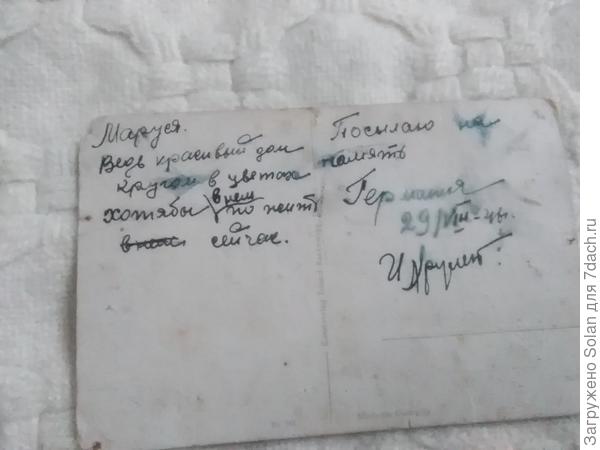 Маруся.
Ведь красивый дом
кругом в цветах
хотябы в нем
по жить
в нем сейчас.
Посылаю на
память
Германия
29/VIII-
И
Загружено Solan для 7dach.ru